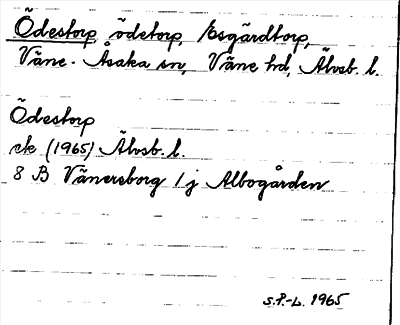 Ödestorp, ödetorp, /osgärdtorp,
Väne-Åsaka sn, Väne hd, Älvsb. l.
Ödestorp
ek (1965) Älvsb. l.
8 B Vänersborg 1 j Albogården
S.P.-L. 1965